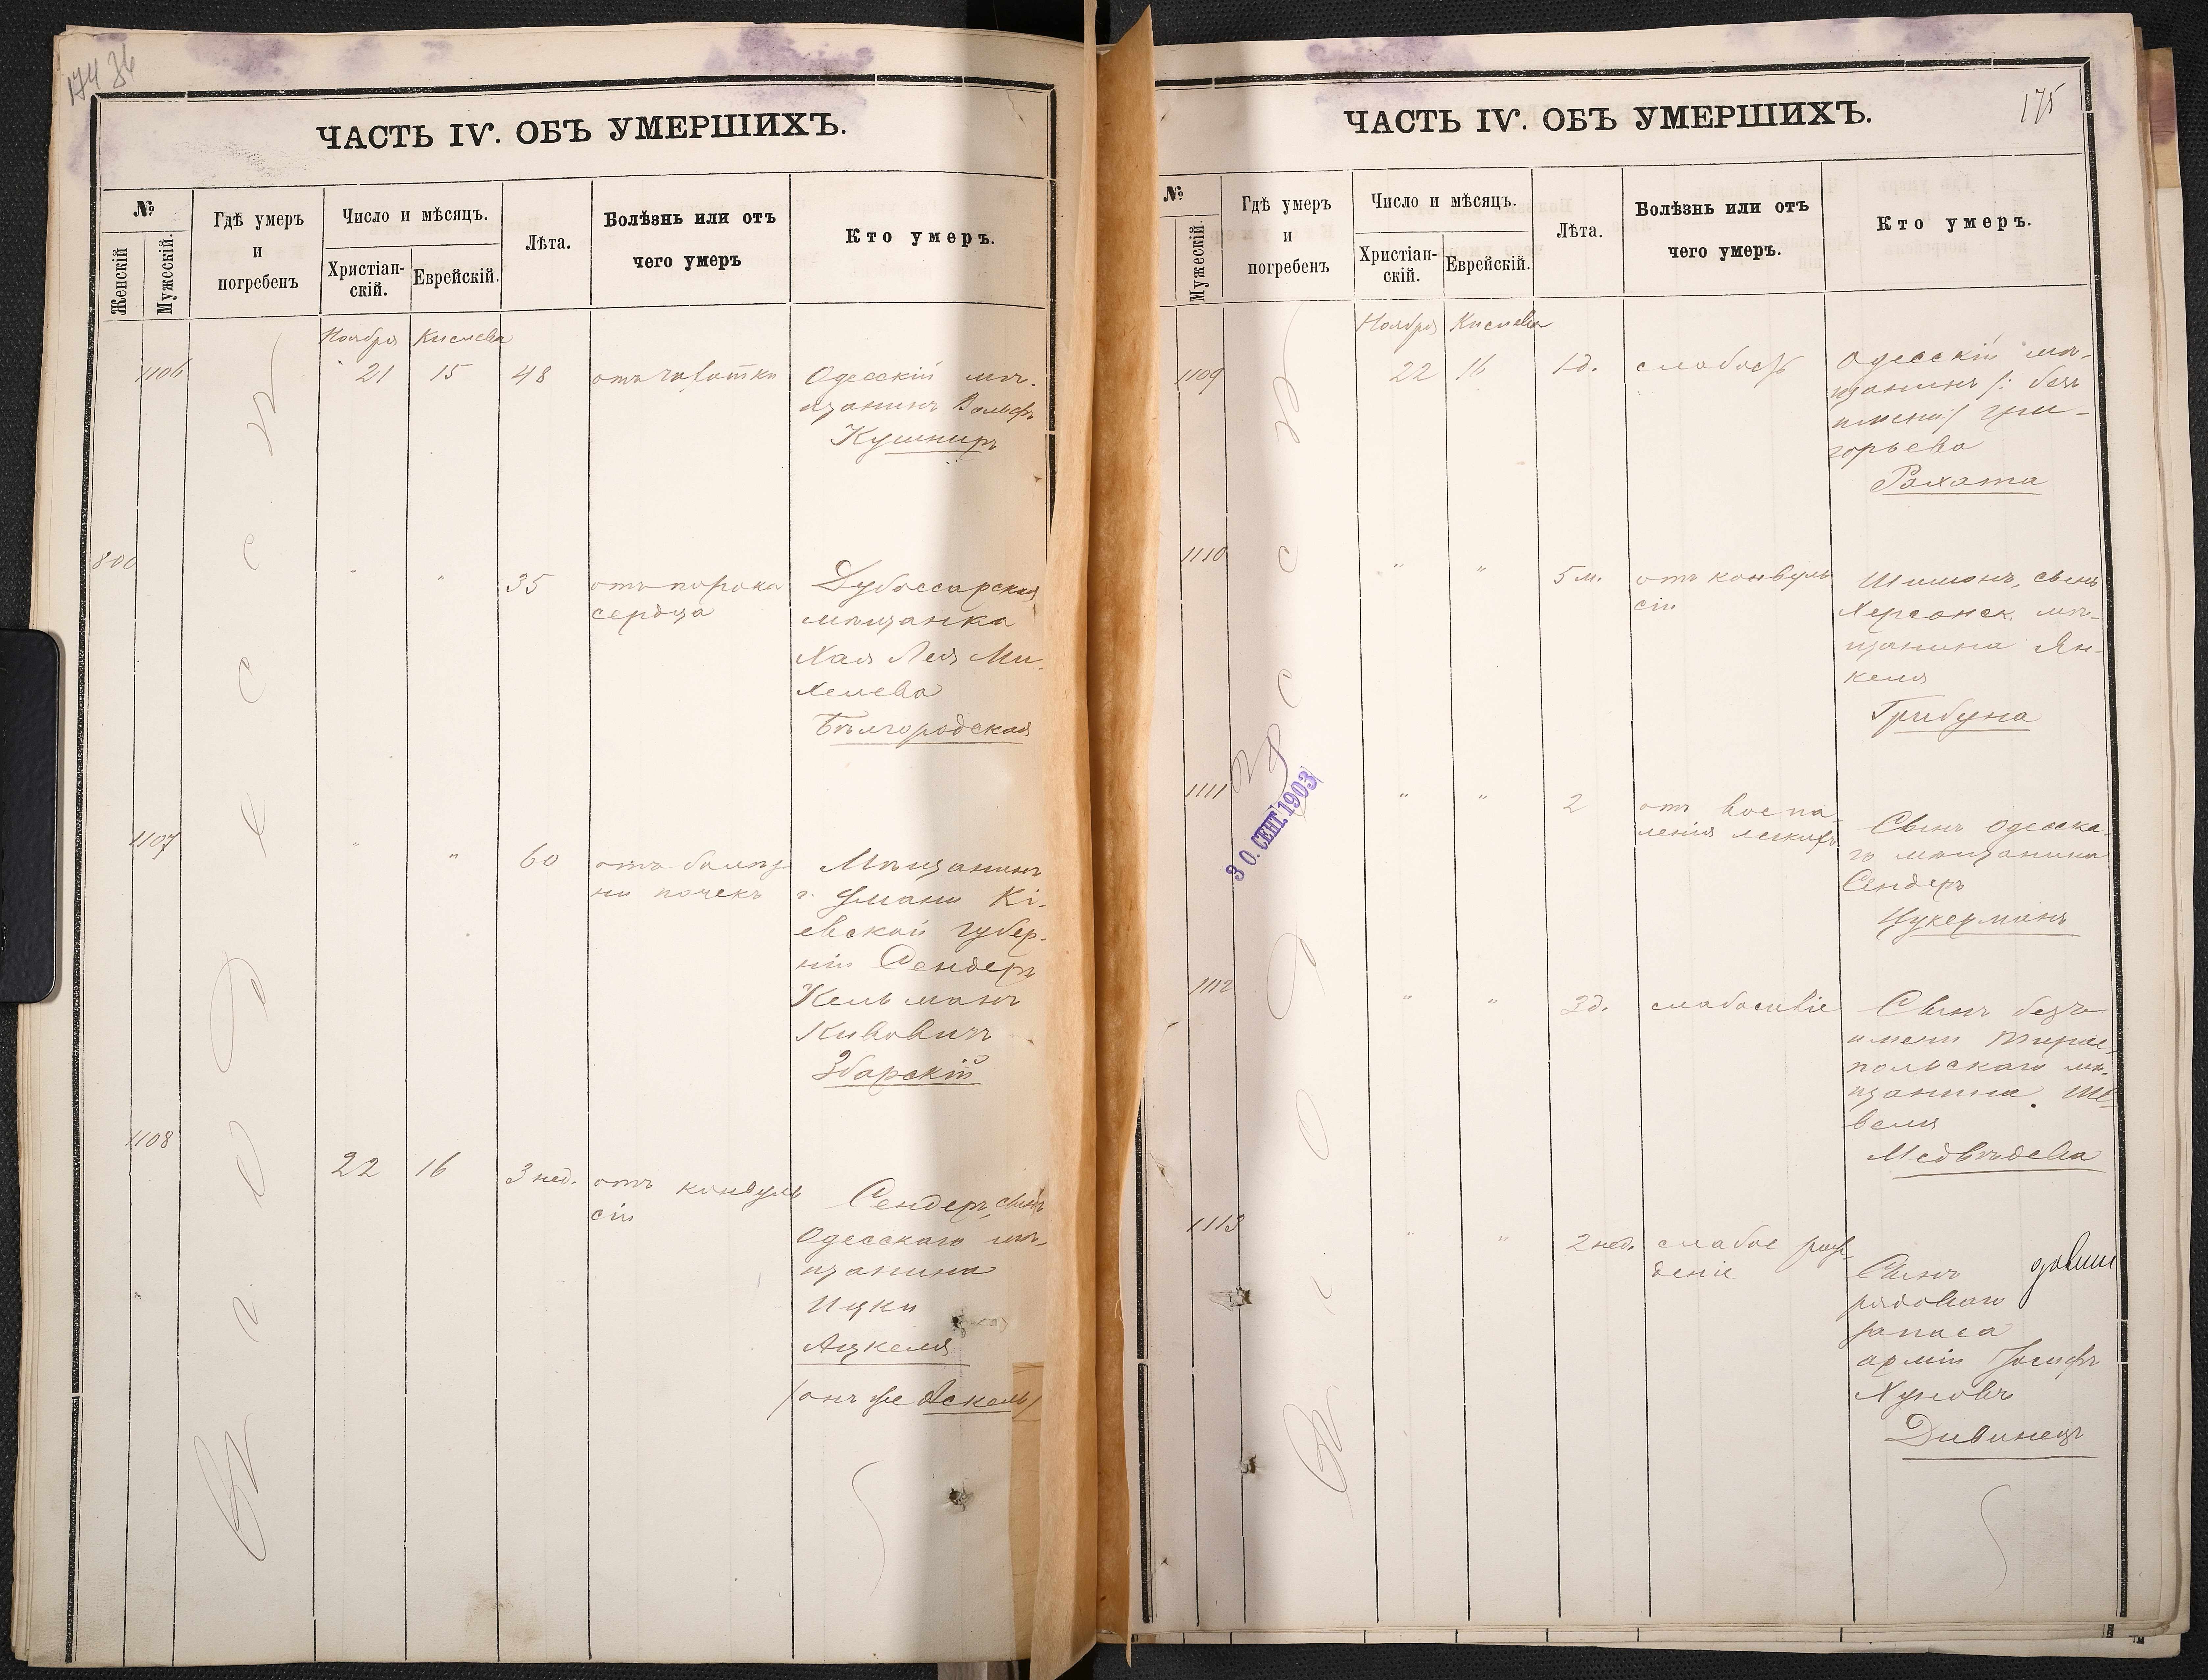 174 36
ЧАСТЬ IV. ОБЪ УМЕРШИХЪ.
№
Женскій
Мужескій.
Гдѣ умеръ
и
погребенъ
Число и мѣсяцъ.
Христіан-
скій.
Еврейскій.
Лѣта.
Болѣзнь или отъ
чего умеръ
Кто умеръ.
Ноября Кислева
1106 21 15 48 отъ чахотки Одесскій мѣ-
щанинъ Вольфъ
Кушниръ
800 " " 35 отъ порока Дубоссарская
сердца мѣщанка
Хая Лея Ми-
хелева
Бѣлгородская
1107 " " 60 отъ болѣз- Мѣщанинъ
ни почекъ г. Умани Кі-
евской губер-
ніи Сендеръ
Кельманъ
Кивовичъ
Збарскій
1108 22 16 3 нед. отъ конвуль Сендеръ, сынъ
сіи
Одесскаго мѣ-
щанина
Ицки
Ацкеля
/онъ же Аскель/
Въ г. Одессѣ
175
ЧАСТЬ IV. ОБЪ УМЕРШИХЪ.
№
Мужескій.
Гдѣ умеръ
и
погребенъ
Число и мѣсяцъ.
Христіан-
скій.
Еврейскій.
Лѣта.
Болѣзнь или отъ
чего умеръ.
Кто умеръ.
Ноября Кислева
1109 22 16 1 д. слабость Одесскій мѣ-
щанинъ /: безъ
имени:/ Гри-
горьева
Рохата
1110 " " 5 м. отъ конвуль Шимонъ, сынъ
сіи Херсонск. мѣ-
щанина Ян-
келя
Грибуна
1111 " " 2 отъ воспа-
ленія легкихъ Сынъ Одесска-
го мѣщанина
Сендеръ
Цукерманъ
30. СЕНТ. 1903
1112 " " 3 д. слабосиліе Сынъ безъ
имени Тирас-
польскаго мѣ-
щанина Ше-
веля
Медвѣдева
1113 " " 2 нед. слабое рож-
деніе Сынъ
рядоваго
запаса
арміи Іосифъ
Хуновъ
Дивинецъ
Въ г. Одессѣ